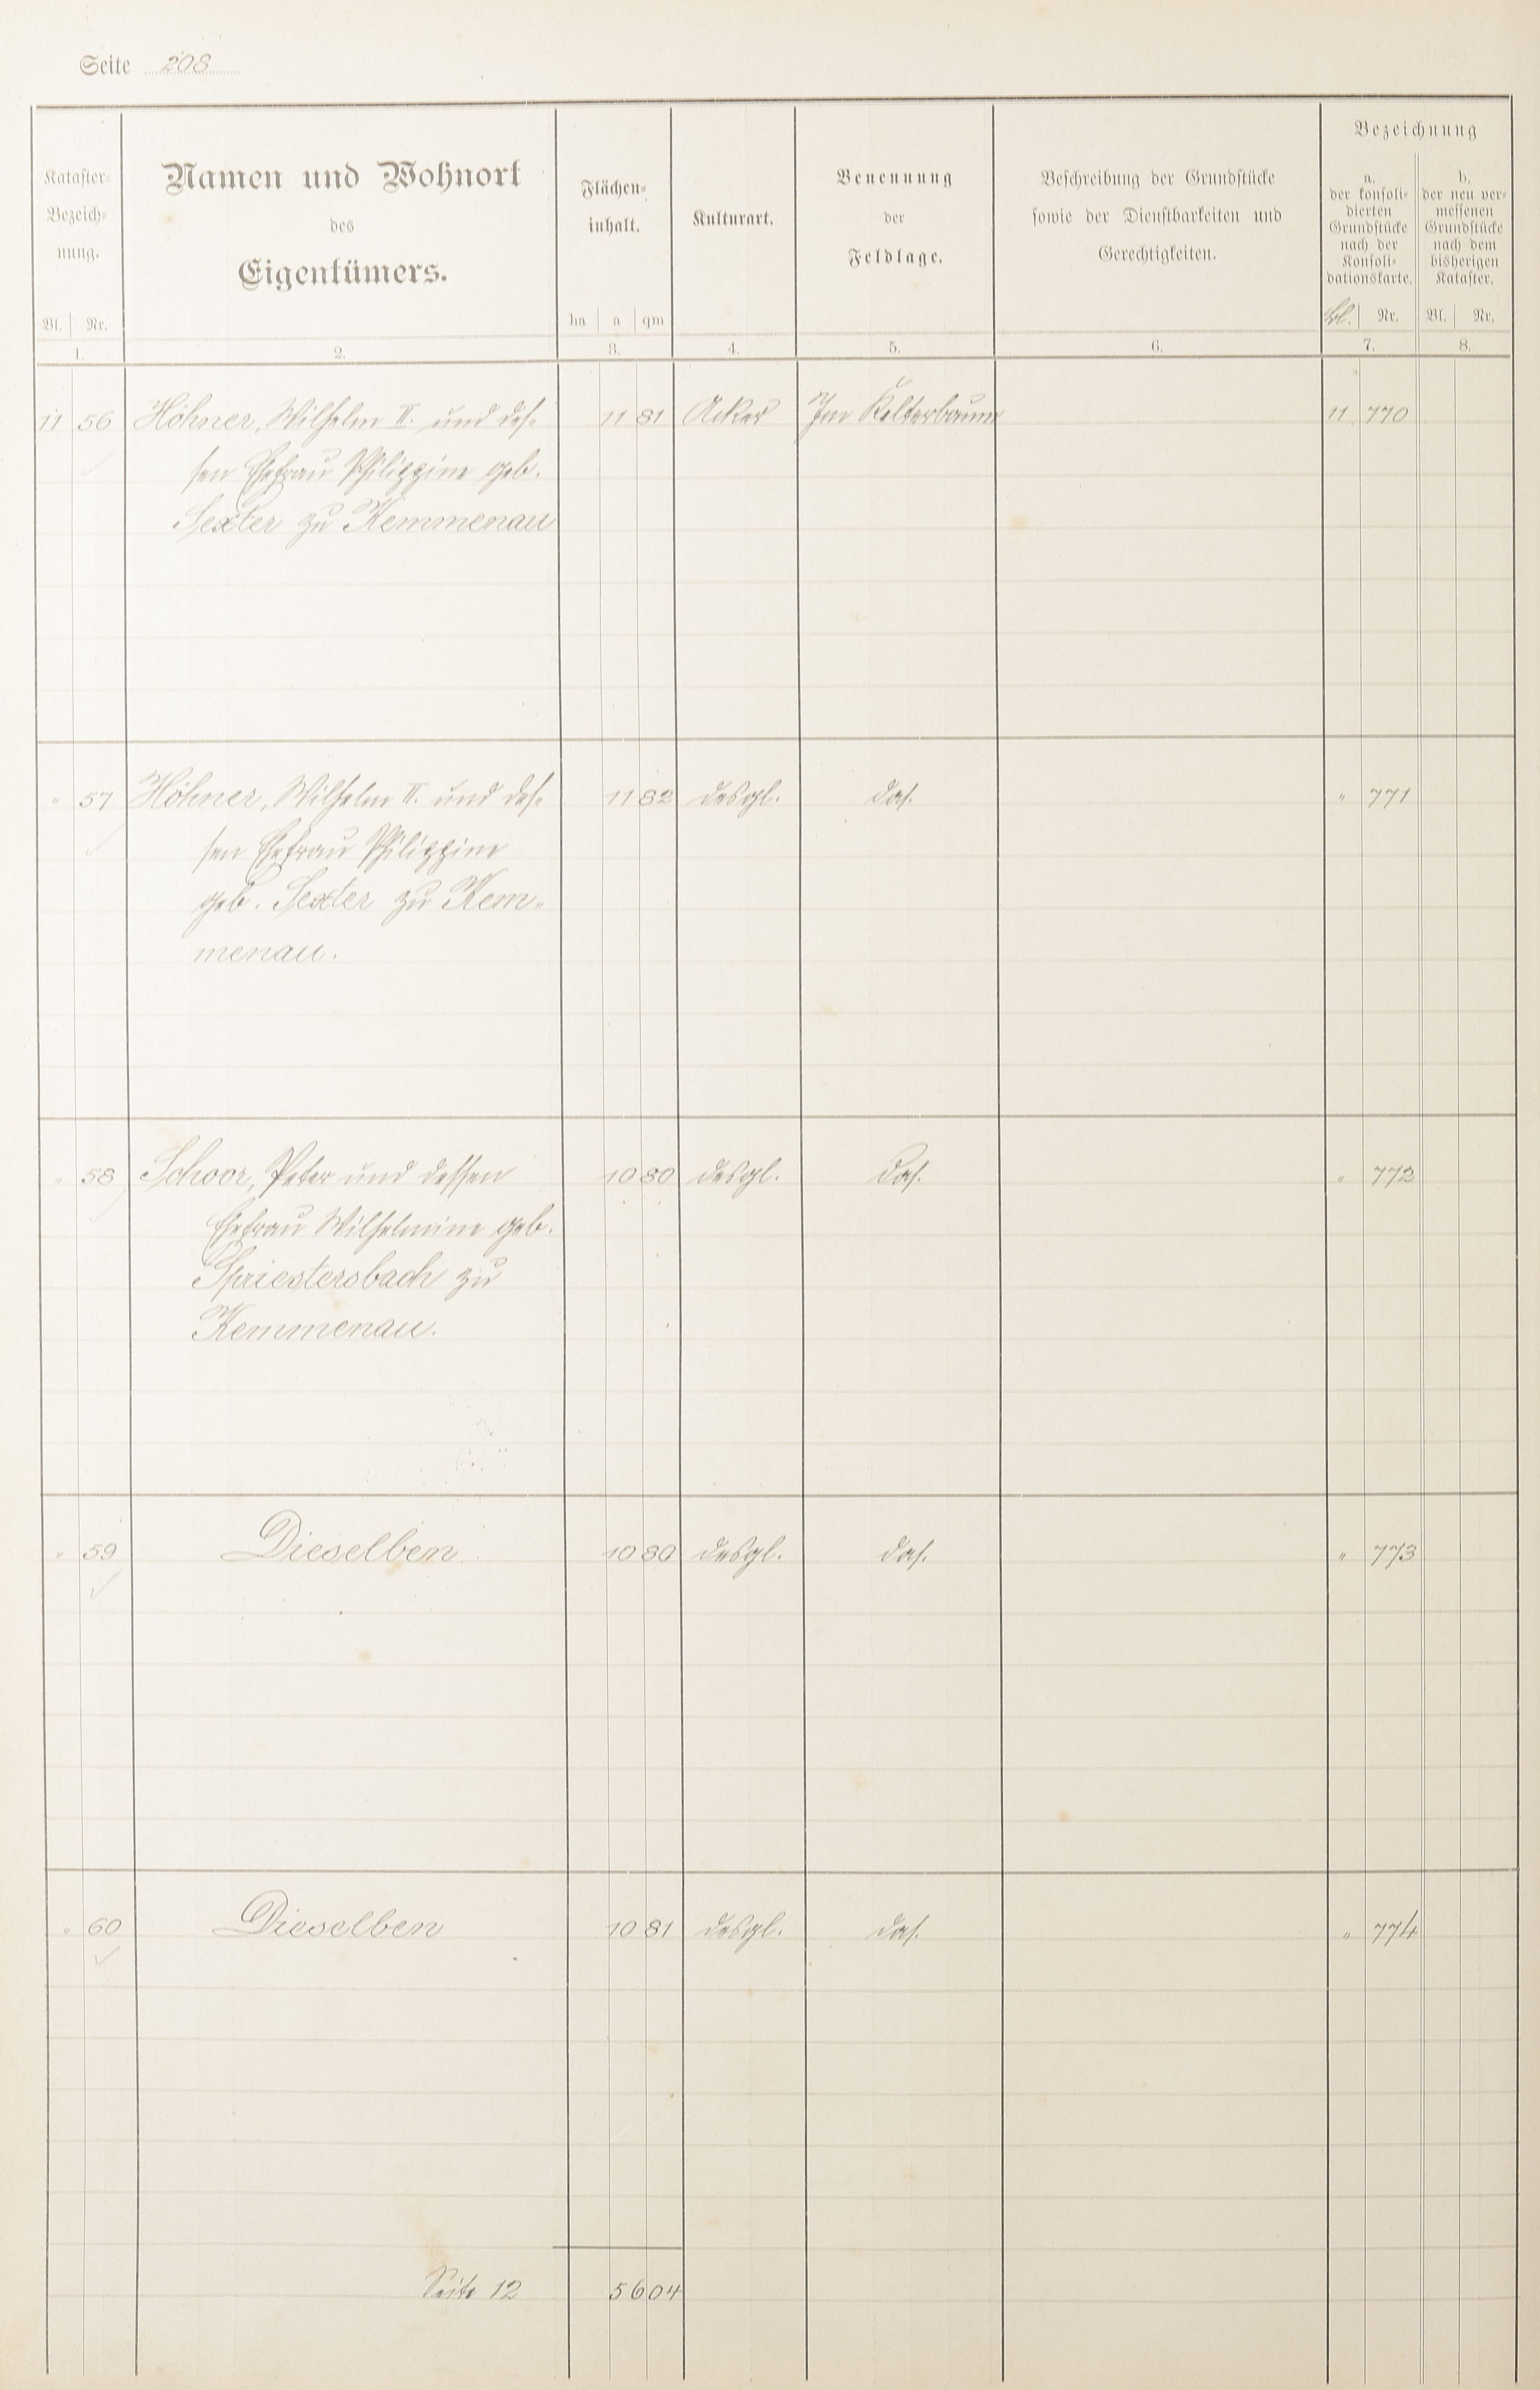 Seite 208
Kataster-
Bezeich-
nung.
Bl. Nr.
1.
Namen und Wohnort
des
Eigentümers.
2.
Flächen-
inhalt.
ha a qm
3.
Kulturart.
4.
Benennung
der
Feldlage.
5.
Beschreibung der Grundstücke
sowie der Dienstbarkeiten und
Gerechtigkeiten.
6.
Bezeichnung
a.
der konsoli-
dierten
Grundstücke
nach der
Konsoli-
dationskarte.
Bl. Nr.
7.
b.
der neu ver-
messenen
Grundstücke
nach dem
bisherigen
Kataster.
Bl. Nr.
8.
11 56 Höhner, Wilhelm II. und des- 11 81 Acker Im Kelterbaum 11 770
sen Ehefrau Philippine geb.
Sexter zu Kemmenau
" 57 Höhner, Wilhelm II. und des- 11 82 desgl. das. " 771
sen Ehefrau Philippine
geb. Sexter zu Kem-
menau.
" 58 Schoor, Peter und dessen 10 80 desgl. Das. " 772
Ehefrau Wilhelmine geb.
Spriestersbach zu
Kemmenau.
" 59 Dieselben 10 80 desgl. das. " 773
" 60 Dieselben 10 81 desgl. das. " 774
Seite 12 56 04